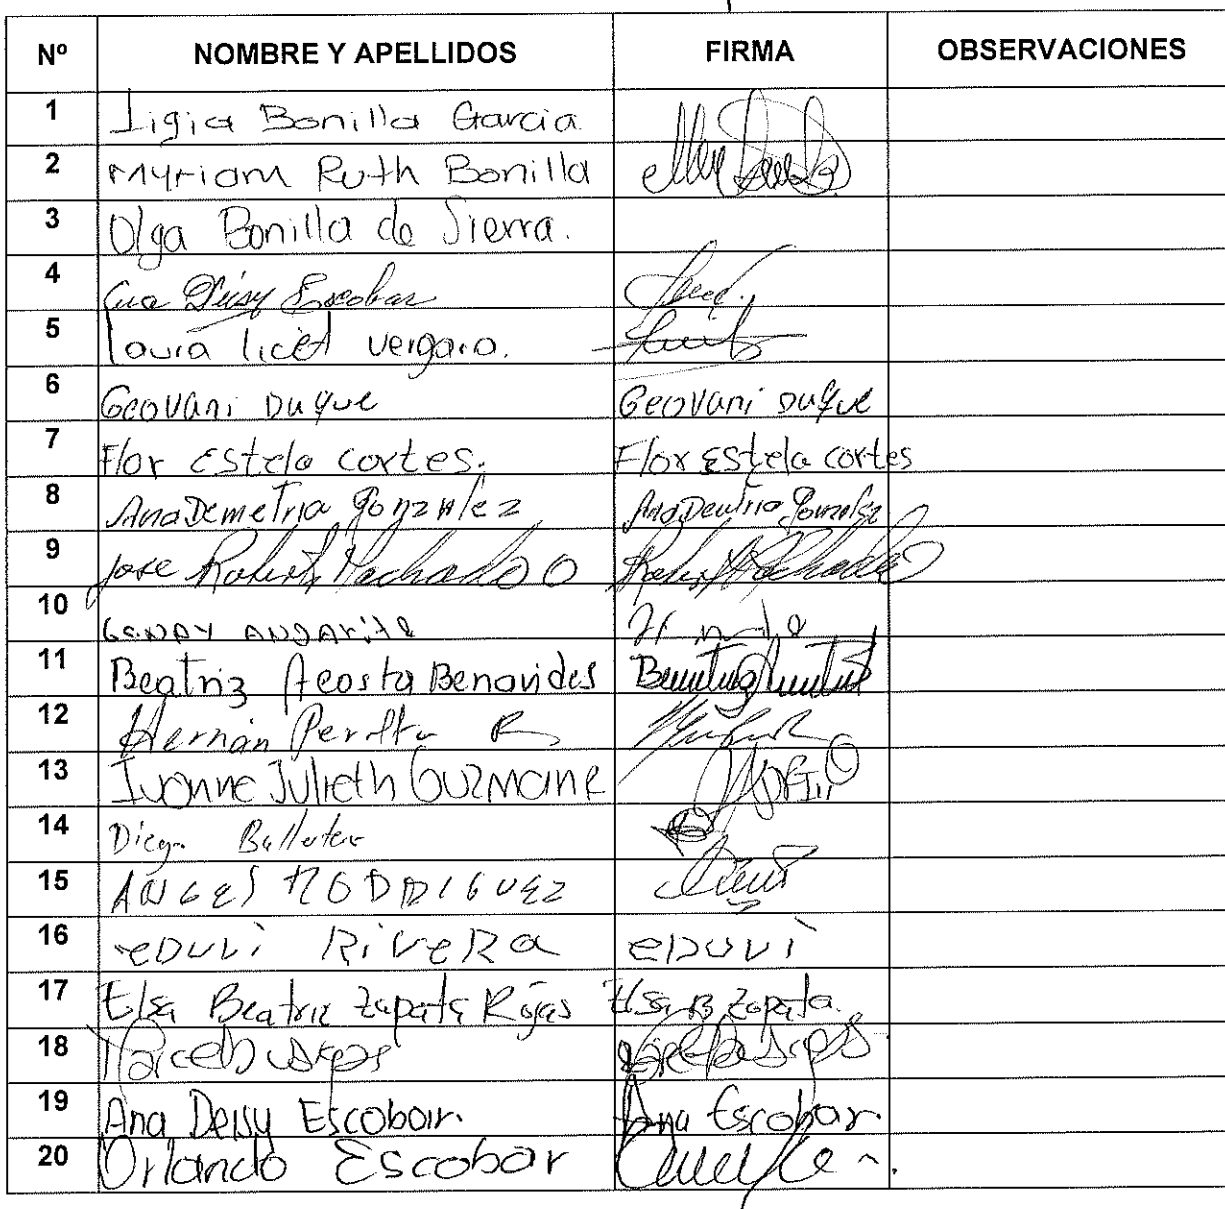 Nº NOMBRE Y APELLIDOS FIRMA OBSERVACIONES
1 Ligia Bonilla Garcia
2 Myriam Ruth Bonilla
3 Olga Bonilla de Sierra.
4 Ana Deisy Escobar
5 laura licet vergara.
6 Geovani Duque Geovani Duque
7 Flor Estela cortes. Flor Estela cortes
8 Ana Demetria Gonzalez Ana Demetria Gonzalez
9 Jose Roberto Machado O Robert Machado
10
11 Beatriz Acosta Benavides
12 Hernan Peralta R
13 Ivonne Julieth Guzman
14 Diego Ballester
15 ANGEL RODRIGUEZ
16 eDuvi RiveRa eDuvi
17 Elsa Beatriz Zapata Rojas Elsa B Zapata.
18
19 Ana Deisy Escobar. Ana Escobar.
20 Orlando Escobar